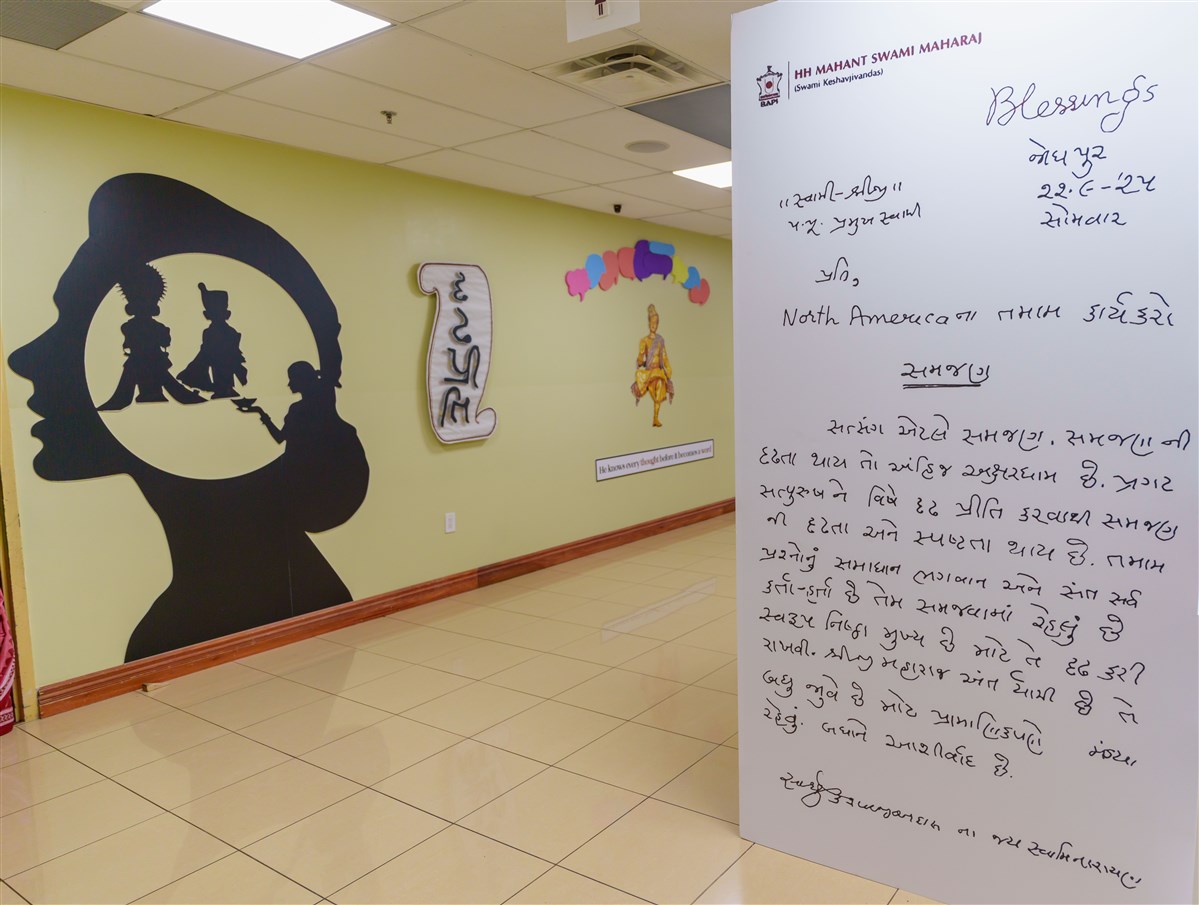 HH MAHANT SWAMI MAHARAJ
(Swami Keshavjivandas)
BAPS
Blessings
જોધપુર
૨૨-૯-'૨૫
સોમવાર
॥ સ્વામી-શ્રીજી ॥
પ.પૂ. પ્રમુખ સ્વામી
પ્રતિ,
North America ના તમામ કાર્યકરો
સમજણ
સત્સંગ એટલે સમજણ. સમજણ ની
દૃઢતા થાય તો અહિંજ અક્ષરધામ છે. પ્રગટ
સત્પુરુષ ને વિષે દૃઢ પ્રીતિ કરવાથી સમજણ
ની દૃઢતા અને સ્પષ્ટતા થાય છે. તમામ
પ્રશ્નોનું સમાધાન ભગવાન અને સંત સર્વ
કર્તા-હર્તા છે તેમ સમજવામાં રહેલું છે
સ્વરૂપ નિષ્ઠા મુખ્ય છે માટે તે દૃઢ કરી
રાખવી. શ્રીજી મહારાજ અંતર્યામી છે તે
બધુ જુવે છે માટે પ્રામાણિકપણે મંડ્યા
રહેવું. બધાને આશીર્વાદ છે.
સાધુ કેશવજીવનદાસ ના જય સ્વામિનારાયણ
He knows every thought before it becomes a word